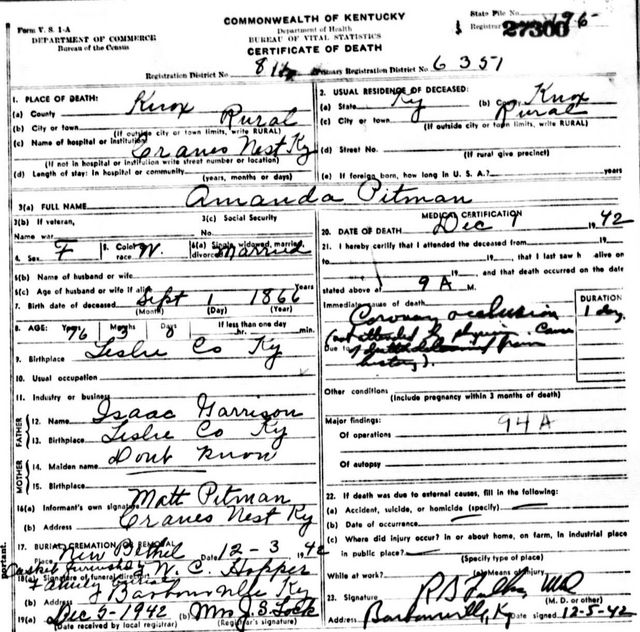 Form V. S. 1-A
DEPARTMENT OF COMMERCE
Bureau of the Census
COMMONWEALTH OF KENTUCKY
Department of Health
BUREAU OF VITAL STATISTICS
CERTIFICATE OF DEATH
State File No.
Registrar 27300
Registration District No. 81 Primary Registration District No. 6351
1. PLACE OF DEATH:
(a) County Knox
(b) City or town Rural
(If outside city or town limits, write RURAL)
(c) Name of hospital or institution Cranes Nest Ky
(If not in hospital or institution write street number or location)
(d) Length of stay: In hospital or community
(years, months or days)
2. USUAL RESIDENCE OF DECEASED:
(a) State Ky (b) County Knox
(c) City or town Rural
(If outside city or town limits, write RURAL)
(d) Street No.
(If rural give precinct)
(e) If foreign born, how long in U. S. A.? years
3(a) FULL NAME Amanda Pitman
3(b) If veteran, Name war
3(c) Social Security No.
4. Sex F 5. Color race W. 6(a) Single, widowed, married, divorced Married
6(b) Name of husband or wife
6(c) Age of husband or wife if alive
7. Birth date of deceased Sept 1 1866
(Month) (Day) (Year)
8. AGE: Years 76 Months 3 Days 0 If less than one day hr. min.
9. Birthplace Leslie Co Ky
10. Usual occupation
11. Industry or business
FATHER
12. Name Isaac Garrison
13. Birthplace Leslie Co Ky
MOTHER
14. Maiden name Dont Know
15. Birthplace
16(a) Informant's own signature Matt Pitman
(b) Address Cranes Nest Ky
17. BURIAL CREMATION OR REMOVAL
New Bethel Date 12-3 1942
18(a) Signature of funeral director W. C. Hopper
(b) Address Barbourville Ky
19(a) Dec 5-1942 Mrs J. S. Lock
(Date received by local registrar) (Registrar's signature)
MEDICAL CERTIFICATION
20. DATE OF DEATH Dec 1 1942
21. I hereby certify that I attended the deceased from 19
to 19 , that I last saw h alive on
19 , and that death occurred on the date
stated above at 9 A M.
Immediate cause of death
Coronary occlusion
(not attended by physician. Cause
Due to of death determined from
history).
DURATION
1 day
Other conditions
(Include pregnancy within 3 months of death)
Major findings: 94A
Of operations
Of autopsy
22. If death was due to external causes, fill in the following:
(a) Accident, suicide, or homicide (specify)
(b) Date of occurrence
(c) Where did injury occur? in or about home, on farm, in industrial place
in public place?
(Specify type of place)
While at work? (e) Means of injury
23. Signature
(M. D. or other)
Address Barbourville, K Date signed 12-5-42
portant.